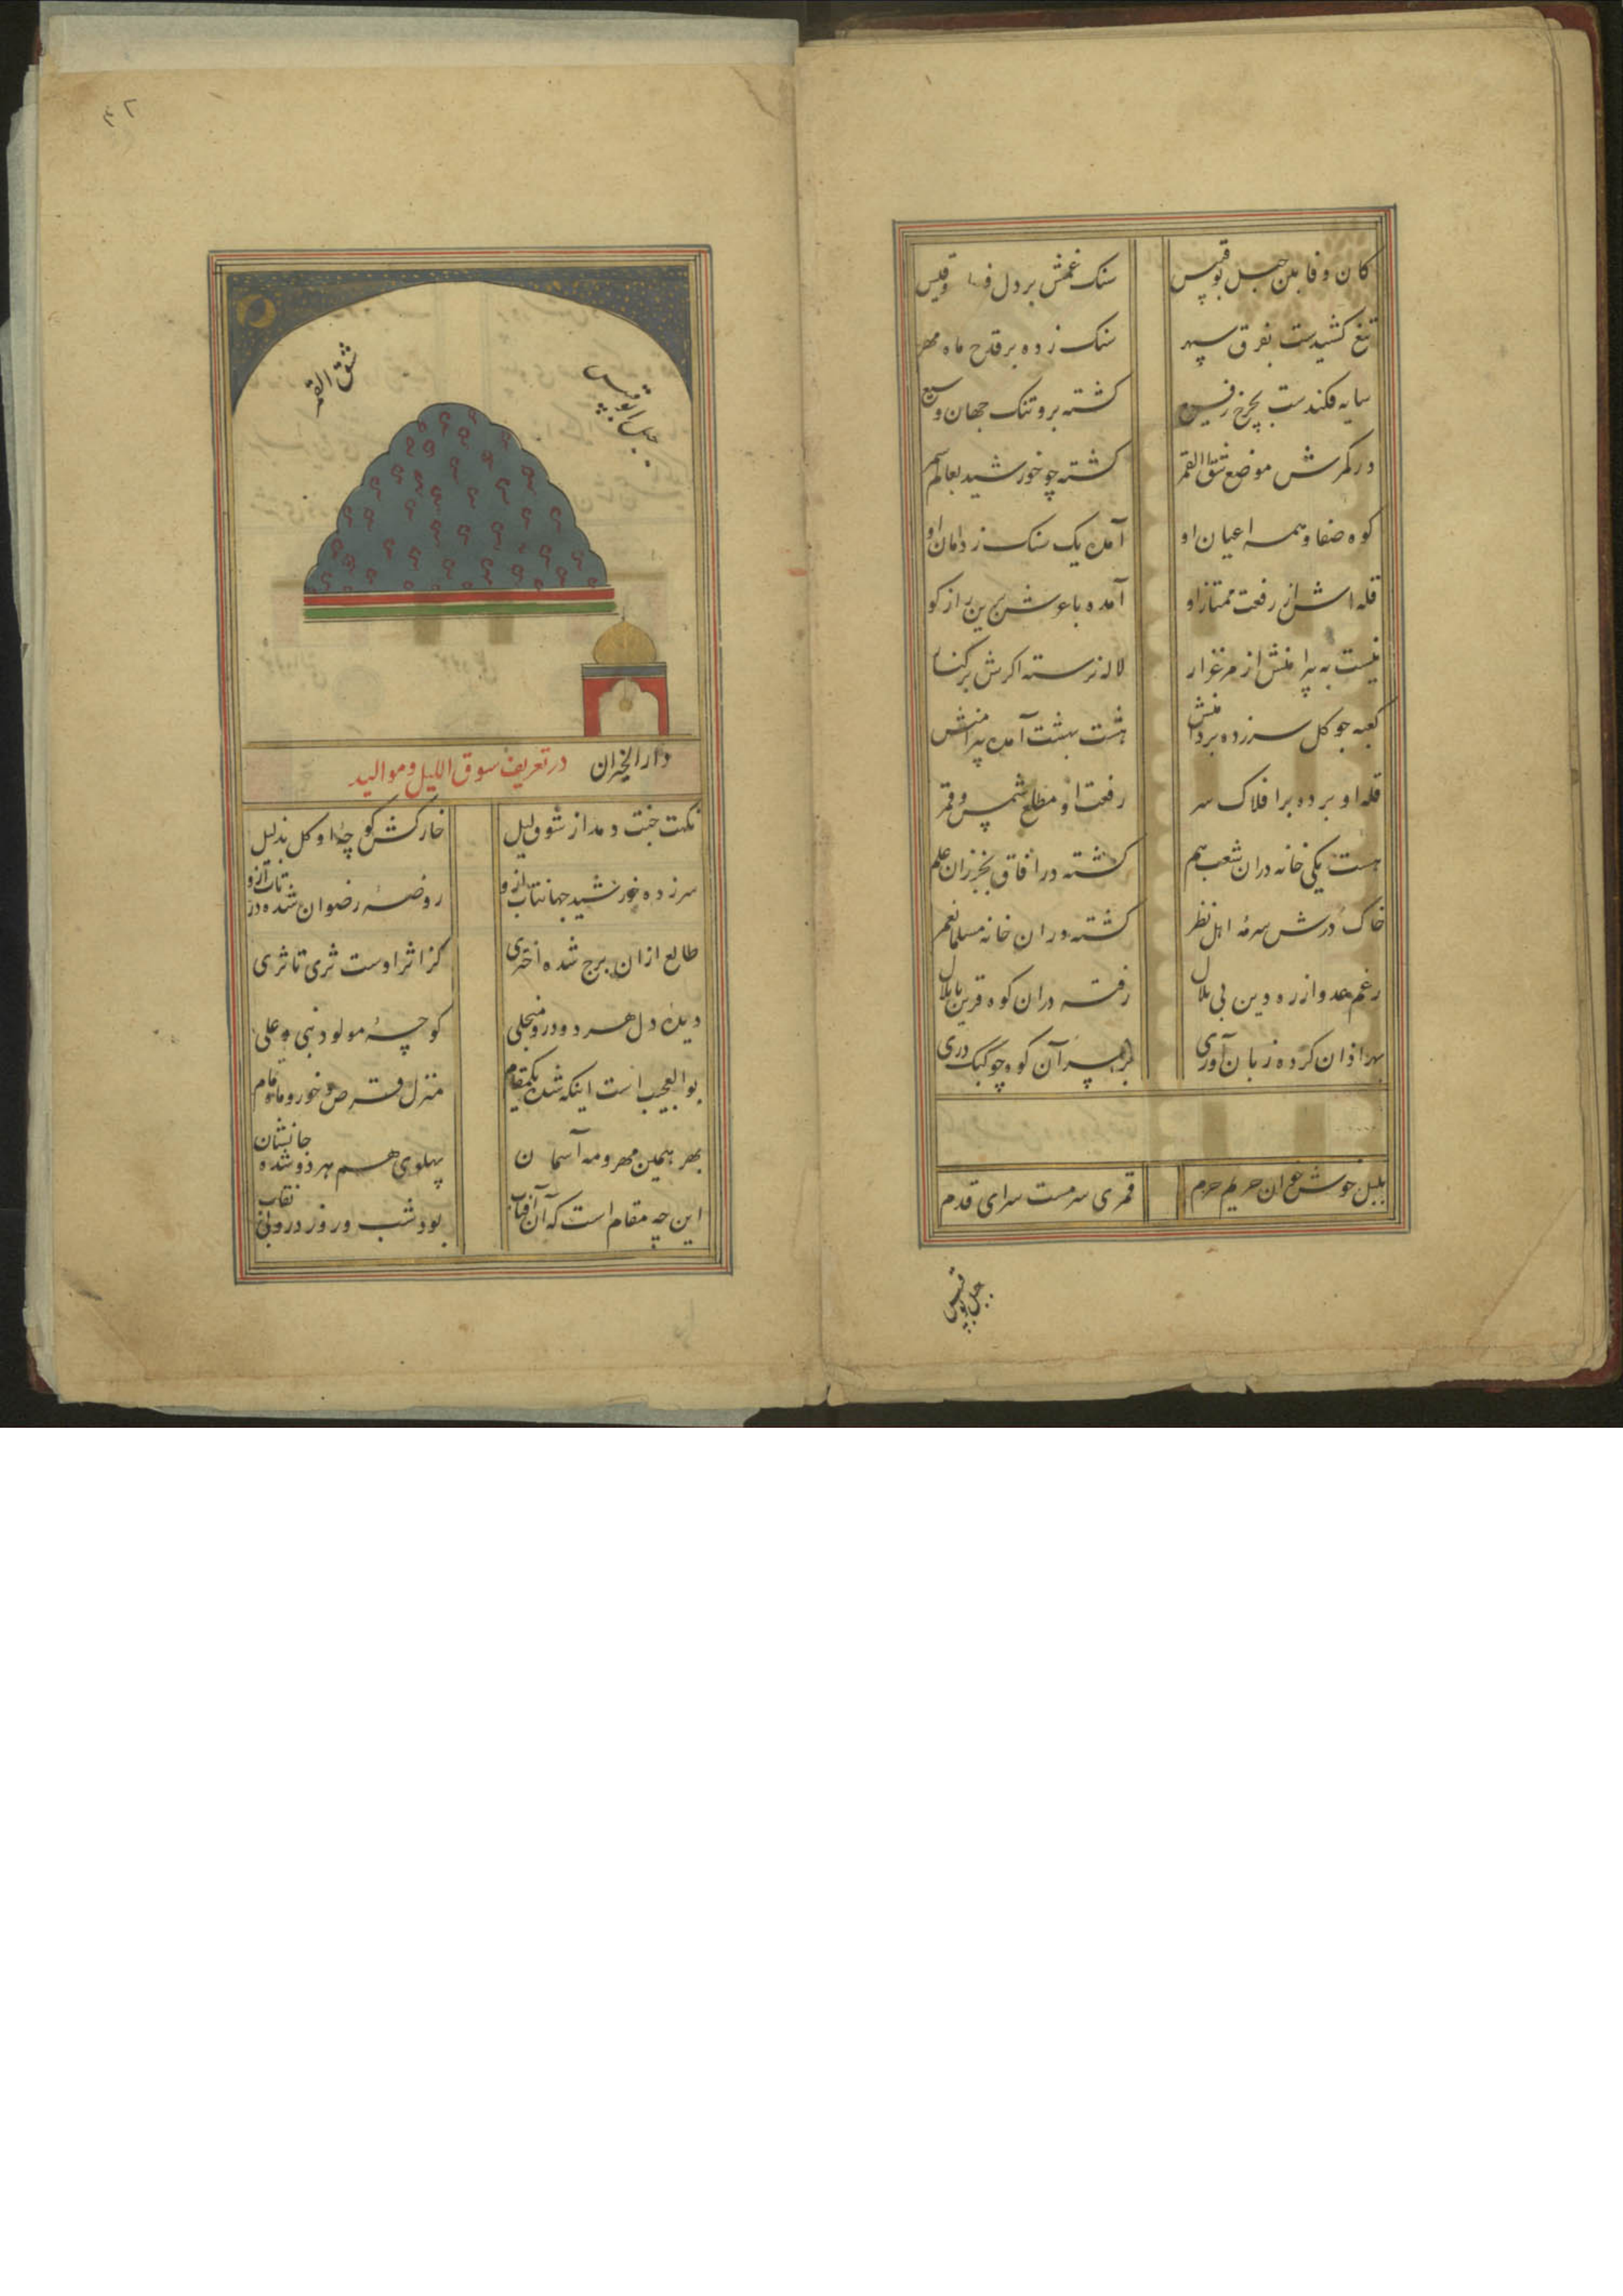 کان وفا بین جبل بوقبیس
سنک غمش بر دل فرهاد و قیس
تیغ کشیدست بفرق سپهر
سنک زده بر قدح ماه و مهر
سایه فکندست بچرخ رفیع
کشته برو تنک جهان وسیع
در کمرش موضع شق القمر
کشته چو خورشید بعالم
کوه صفا و همه اعیان او
آمده یک سنک ز دامان او
قله اش از رفعت ممتاز او
آمده با عرش برین راز کو
نیست به پیرامنش از مرغزار
لاله نرسته اکرش بر کنار
کعبه جو کل سر زده بر دامنش
هشت بهشت آمده پیرامنش
قله او برده بر افلاک سر
رفعت او مطلع شمس و قمر
هست یکی خانه دران شعب هم
کشته در افاق بخیزران علم
خاک درش سرمه اهل نظر
کشته دران خانه مسلمان
رغم عدو از ره دین بی ملال
رفته دران کوه قرین با بلال
بهر اذان کرده زبان آوری
بر سر آن کوه چو کبک دری
بلبل خوش خوان حریم حرم
قمری سرمست سرای قدم
جبل بوقبیس
شق القمر
جبل ابوقبیس
دار الخیزران در تعریف سوق اللیل و موالید
نکهت جنت دمد از سوق لیل
خارکش کوچه او کل بذیل
سر زده خورشید جهانتاب ازو
روضه رضوان شده در تاب ازو
طالع ازان برج شده اختری
کز اثر اوست ثری تا ثری
دیده دل هر دو درو منجلی
کوچه مولود نبی و علی
بوالعجب است اینکه شده یکمقام
منزل قرص خور و ماه تمام
بهر همین مهر و مه آسمان
پهلوی هم هر دو شده جانشان
این چه مقام است که آن آفتاب
بود شب و روز درو بی نقاب